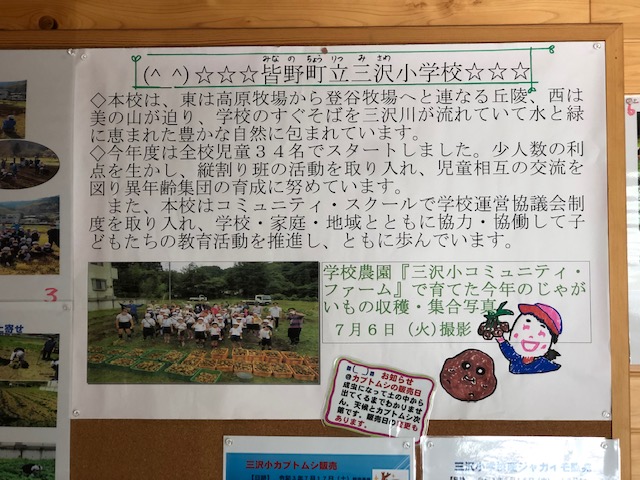 みなのちょうりつみさわ
(^_^)☆☆☆皆野町立三沢小学校☆☆☆
◇本校は、東は高原牧場から登谷牧場へと連なる丘陵、西は
美の山が迫り、学校のすぐそばを三沢川が流れていて水と緑
に恵まれた豊かな自然に包まれています。
◇今年度は全校児童34名でスタートしました。少人数の利
点を生かし、縦割り班の活動を取り入れ、児童相互の交流を
図り異年齢集団の育成に努めています。
また、本校はコミュニティ・スクールで学校運営協議会制
度を取り入れ、学校・家庭・地域とともに協力・協働して子
どもたちの教育活動を推進し、ともに歩んでいます。
学校農園『三沢小コミュニティ・
ファーム』で育てた今年のじゃが
いもの収穫・集合写真
7月6日(火)撮影
お知らせ
@カブトムシの販売日
成虫になって土の中から
出てくるまでわかりませ
ん。天候とカブトムシ次
第です。販売日の変更も
あります。
3
土寄せ
三沢小カブトムシ販売
三沢小
ジャガイモ販売